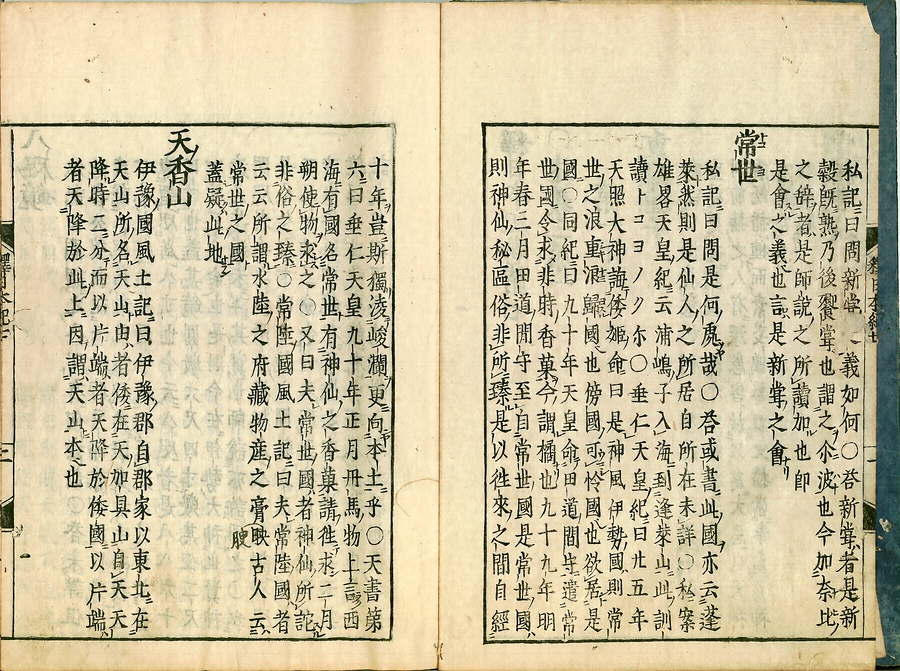 私記曰問新甞 義如何〇荅新甞者是新
穀既熟乃後饗甞也謂之尓波也今加奈比
之辞者是師說之所讀加也即
是會之義也言是新甞之會
常世
私記曰問是何處哉〇荅或書此國亦云蓬
萊然則是仙人之所居自所在未詳〇私案
雄畧天皇紀云浦嶋子入海到逢萊山此訓
讀トコヨノクニ〇垂仁天皇紀曰廿五年
天照大神誨倭姬命曰是神風伊勢國則常
世之浪重浪歸國也傍國可怜國也欲居是
國〇同紀曰九十年天皇命田道間守遣常
世國令求非時香菓今謂橘也九十九年明
年春三月田道間守至自常世國是常世國
則神仙秘區俗非所臻是以徃來之間自經
十年豈斯獨淩峻瀾更向本土乎〇天書第
六曰垂仁天皇九十年正月冊馬物上言西
海有國名常世有神仙之香菓請徃求二月
朔使物求之〇又曰夫常世國者神仙所詫
非俗之臻〇常陸國風土記曰夫常陸國者
云云所謂水陸之府藏物産之膏腴古人云
常世之國
蓋疑此地
天香山
伊豫國風土記曰伊豫郡自郡家以東北在
天山所名天山由者倭在天加具山自天天
降時二分而以片端者天降於倭國以片端
者天降於此土因謂天山本也
釋日本紀七